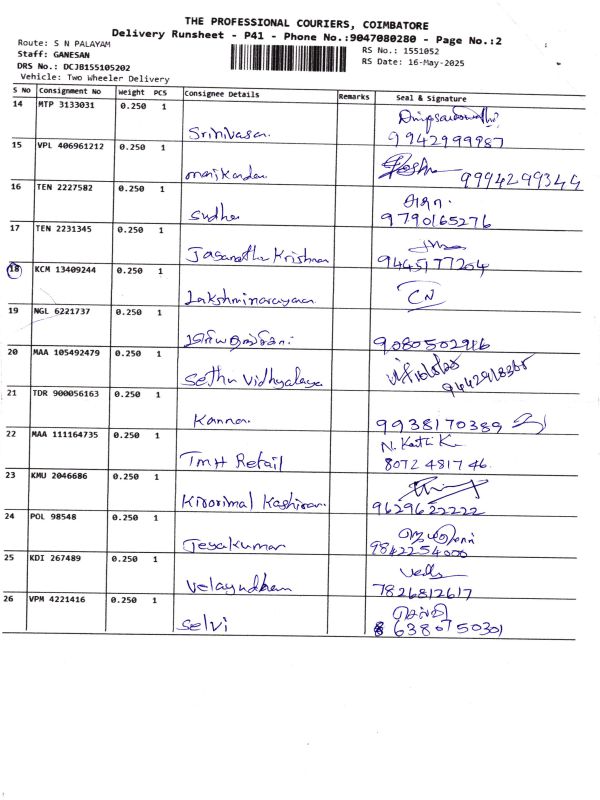 THE PROFESSIONAL COURIERS, COIMBATORE
Delivery Runsheet - P41 - Phone No.:9047080280 - Page No.:2
Route: S N PALAYAM
Staff: GANESAN
DRS No.: DCJB155105202
Vehicle: Two Wheeler Delivery
RS No.: 1551052
RS Date: 16-May-2025
S No Consignment No Weight PCS Consignee Details Remarks Seal & Signature
14 MTP 3133031 0.250 1
Srinivasan 9942999987
15 VPL 406961212 0.250 1
manikandan 9994299344
16 TEN 2227582 0.250 1
Sudha 9790165276
17 TEN 2231345 0.250 1
Jasanatha Krishnan 9445177204
18 KCM 13409244 0.250 1
Lakshminarayanan CN
19 NGL 6221737 0.250 1
9080502916
20 MAA 105492479 0.250 1
Sethu Vidhyalaya 9442918365
21 TDR 900056163 0.250 1
Kannan 9938170389
22 MAA 111164735 0.250 1 N. Karthi K
TMH Retail 8072 481746
23 KMU 2046686 0.250 1
Kirorimal Kashiram 9629622222
24 POL 98548 0.250 1 ஜெயகுமார்
Jeyakumar 9842254000
25 KDI 267489 0.250 1
Velayudham 7826812617
26 VPM 4221416 0.250 1 செல்வி
Selvi 6380750301